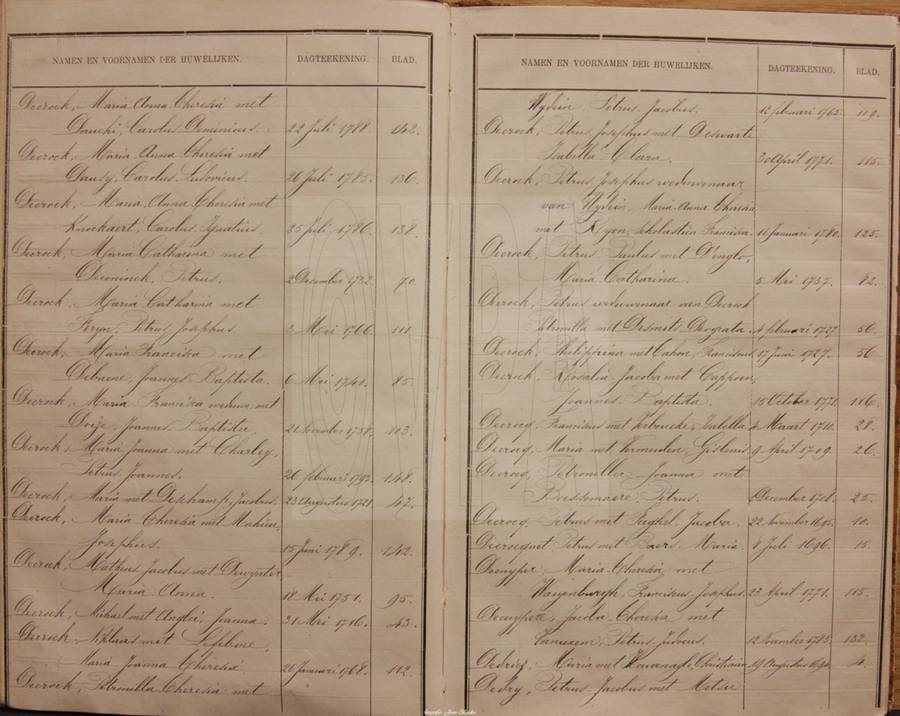 NAMEN EN VOORNAMEN DER HUWELIJKEN. DAGTEEKENING. BLAD.
Decrock, Maria Anna Theresia met
Dauchi, Carolus Dominicus. 22 Juli 1788. 142.
Decrock, Maria Anna Theresia met
Dausy, Carolus Ludovicus. 26 Juli 1785. 136.
Decrock, Maria Anna Theresia met
Knockaert, Carolus Ignatius. 25 Juli 1786. 138.
Decrock, Maria Catharina met
Deconinck, Petrus. 2 December 1722. 70.
Decrock, Maria Catharina met
Feryn, Petrus Josephus 3 Mei 1766. 111.
Decrock, Maria Francisca met
Debrune, Joannes Baptista. 6 Mei 1740. 85.
Decrock, Maria Francisca weduwe met
Joannes Baptista. 1758. 103.
Decrock, Maria Joanna met Charley,
Petrus Joannes. 26 februari 1793 148.
Decrock, Maria met Deschamp, Jacobus. 23 Augustus 1728 47.
Decrock, Maria Theresia met Mahieu,
Josephus. 15 Juni 1789. 142.
Decrock, Matheus Jacobus met
Maria Anna. 18 Mei 1751. 95.
Decrock, Michael met Angloi, Joanna. 31 Mei 1716. 43.
Decrock, Niklaas met Lefebvre,
Maria Joanna Theresia. 26 Januari 1768. 112.
Decrock, Petronilla Theresia met
NAMEN EN VOORNAMEN DER HUWELIJKEN. DAGTEEKENING. BLAD.
Wydein, Petrus Jacobus. 12 februari 1765. 109.
Decrock, Petrus Josephus met Deswarte
Isabella Clara. 30 April 1771. 115.
Decrock, Petrus Josephus weduwenaar
van Wydein Maria Anna Theresia
met Ryon, Scholastica Francisca. 11 Januari 1780. 125.
Decrock, Petrus Paulus met
Maria Catharina. 5 Mei 1737. 82.
Decrock, Petrus weduwenaar van Decrock
Petronilla met Desmets, Deograta. 4 februari 1727. 56.
Decrock, Philippina met Cahon, Franciscus. 17 Juni 1727. 56
Decrock, Rosalia Jacoba met Cappoen,
Joannes Baptista. 15 October 1771. 116.
Decrocq, Franciscus met Verbeucke, Isabella. 4 Maart 1710. 28.
Decrocq, Maria met Vermeulen, Gislenus. 9 April 1709. 26.
Decrocq, Petronilla Joanna met
Bessemaere, Petrus. December 1708. 25.
Decrocq, Petrus met Jacoba. 22 November 1695. 10.
Decrocqnet Petrus met Baert Maria. 8 Juli 1696. 15.
Decuyper Maria Theresia met
Wanenburgh, Franciscus Josephus. 23 April 1771. 115.
Decuypere, Jacoba Theresia met
Petrus Judocus. 12 November 1783. 132.
Maria met Christiaan. 19 Augustus 4.
Dedry, Petrus Jacobus met